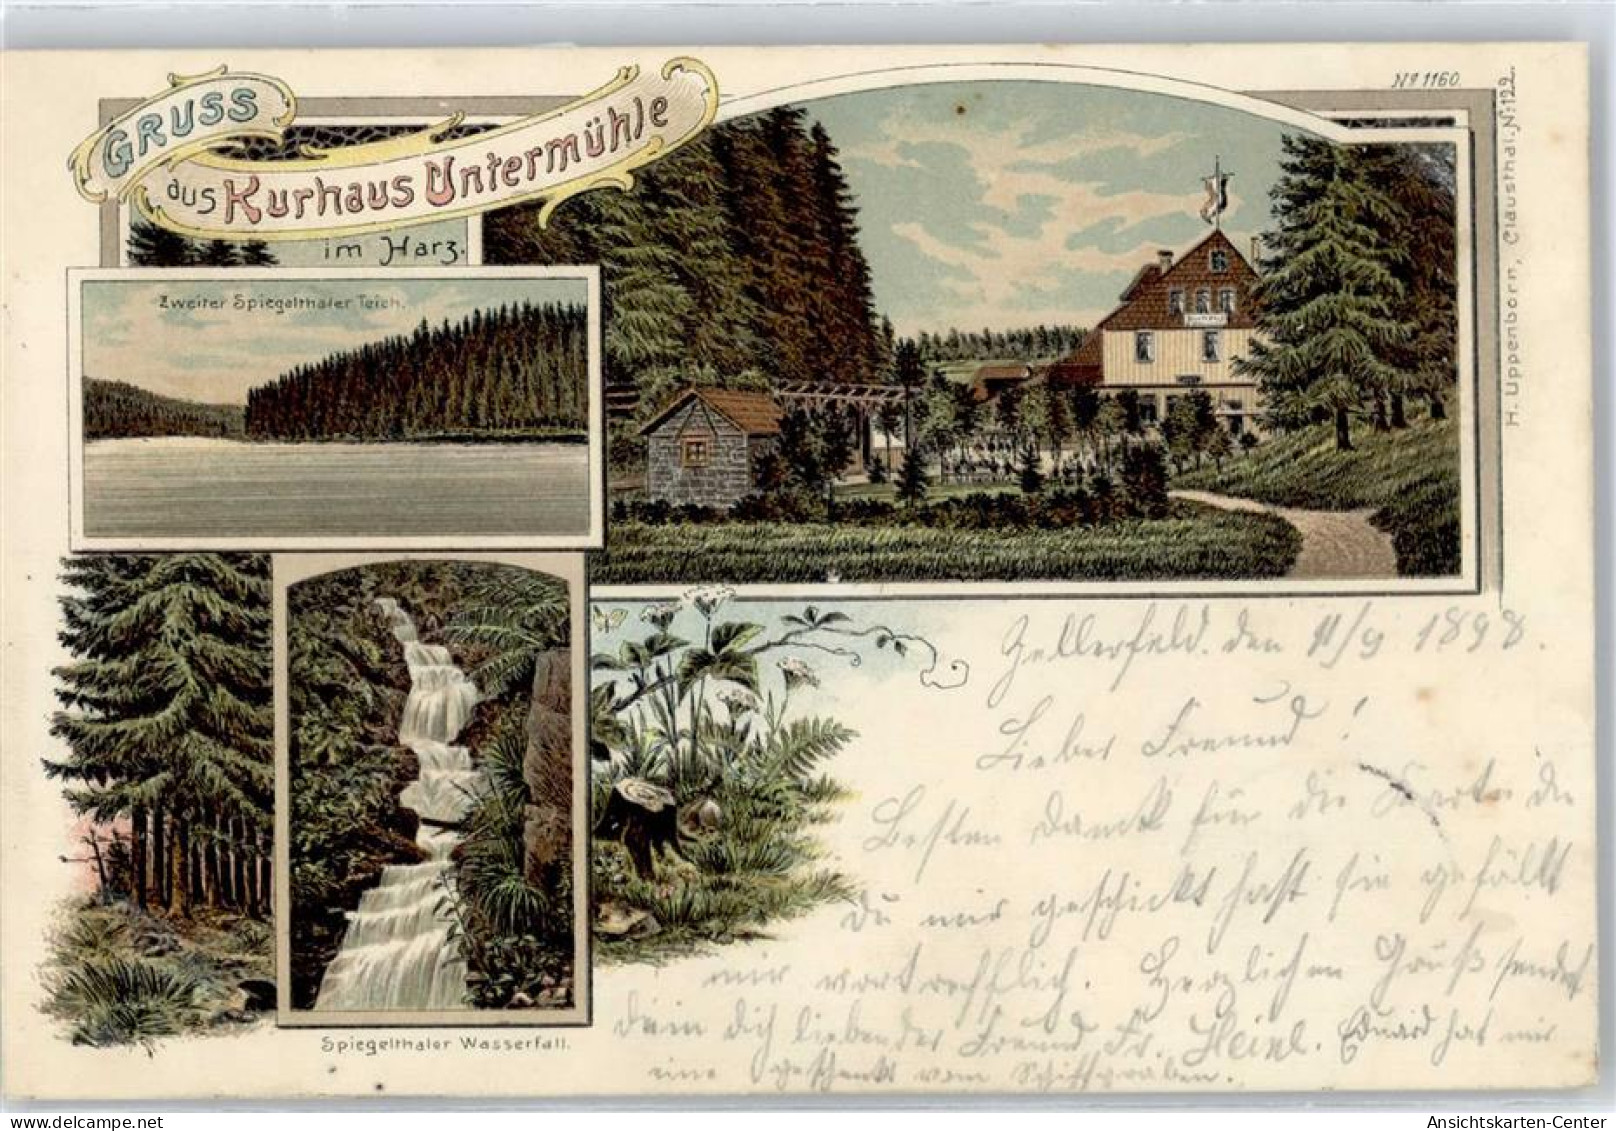 GRUSS
aus Kurhaus Untermühle
im Harz.
Nº 1160.
H. Uppenborn, Clausthal. Nº 122.
Zweiter Spiegelthaler Teich.
Spiegelthaler Wasserfall.
Zellerfeld. den 11/9 1898.
Lieber Freund!
Besten Dank für die Karte die
du mir geschickt hast sie gefällt
mir vortrefflich. Herzlichen Gruß sendet
dein dich liebender Freund Fr. Heinl. Eduard hat mir
eine geschenkt vom Schiffgraben.
Ansichtskarten-Center